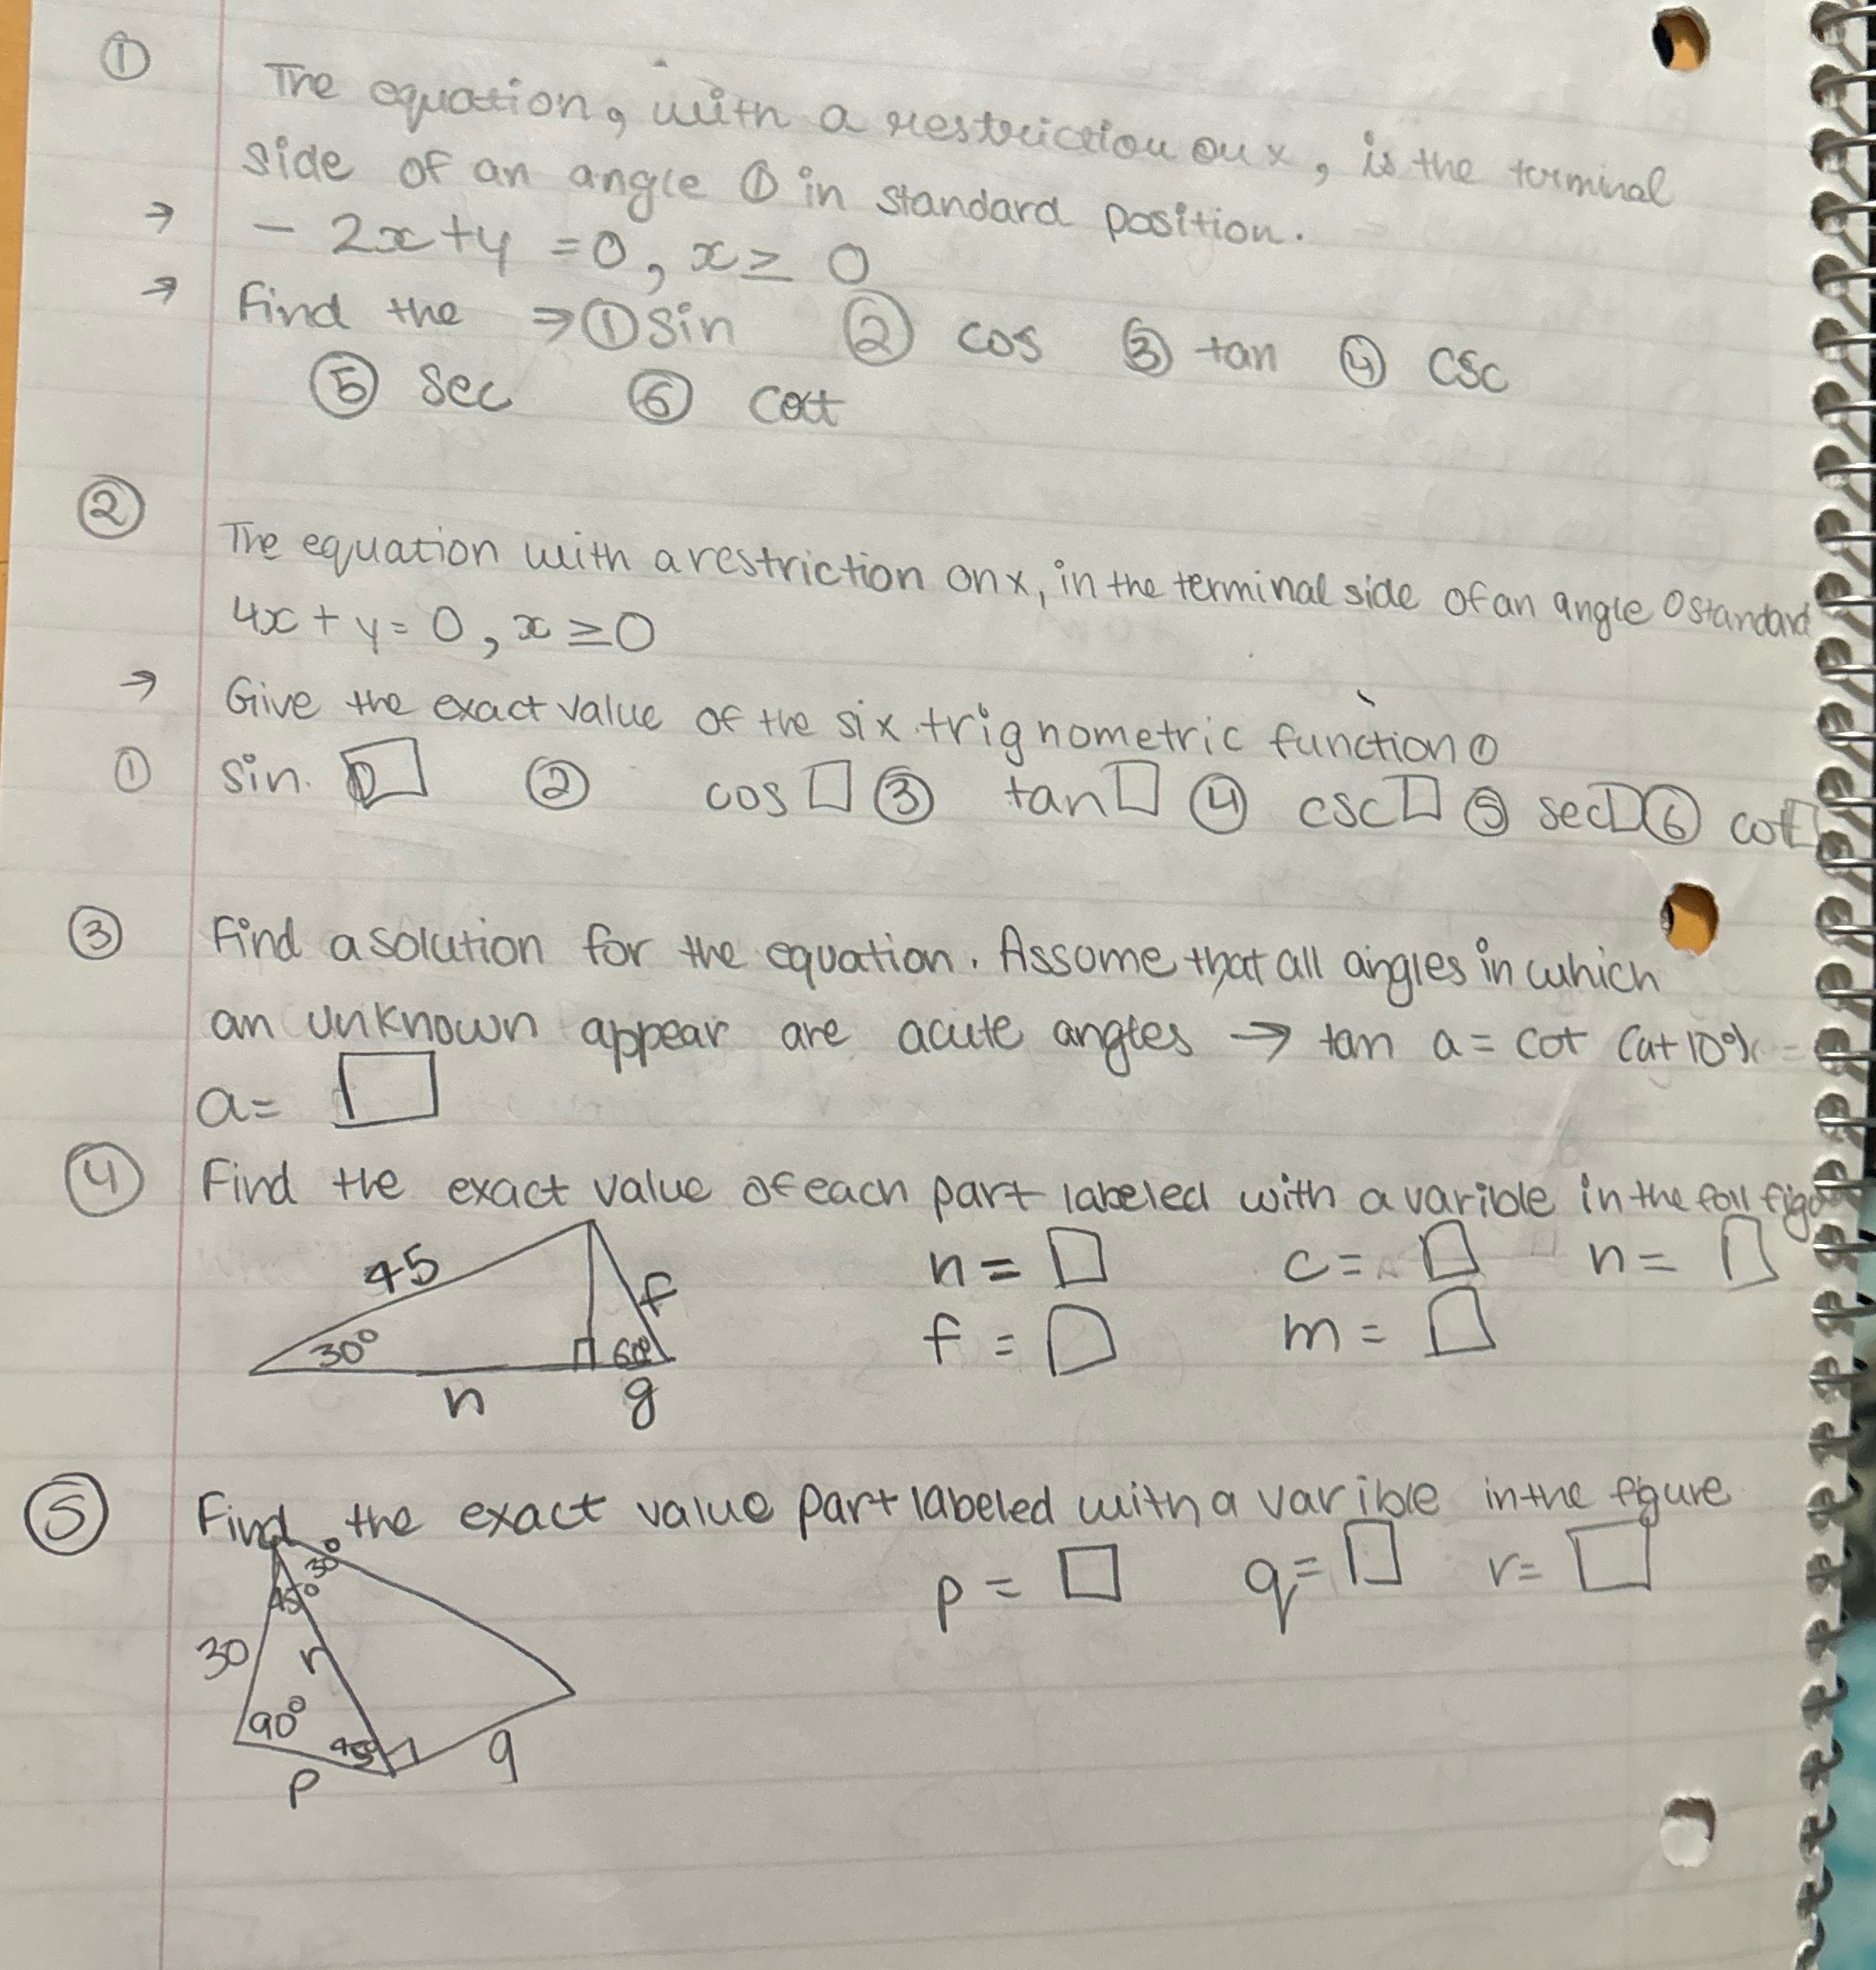 ①
The equation, with a restriction on x, is the terminal
side of an angle θ in standard position.
→ - 2x+y = 0, x ≥ 0
→ Find the ⇒ ① sin ② cos ③ tan ④ csc
⑤ sec ⑥ cot
②
The equation with a restriction on x, in the terminal side of an angle θ standard
4x + y = 0, x ≥ 0
→ Give the exact value of the six trignometric function θ
① sin. □ ② cos □ ③ tan □ ④ csc □ ⑤ sec □ ⑥ cot □
③ Find a solution for the equation. Assume that all angles in which
an unknown appear are acute angles → tan a = cot (a+10°)
a= □
④ Find the exact value of each part labeled with a varible in the foll
45
f
30°
60°
n
g
n = □ c = □ n = □
f = □ m = □
⑤ Find the exact value part labeled with a varible in the figure
30°
45°
30
r
90°
45°
p
q
p = □ q = □ r = □